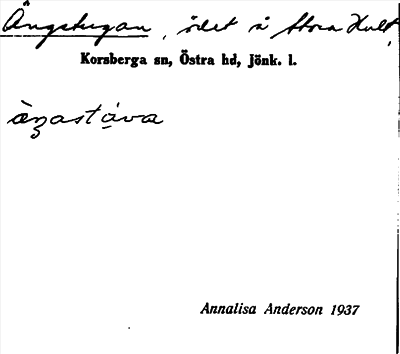 Ängstugan, ödet å Stora Hult,
Korsberga sn, Östra hd, Jönk. l.
àŋastáva
Annalisa Anderson 1937